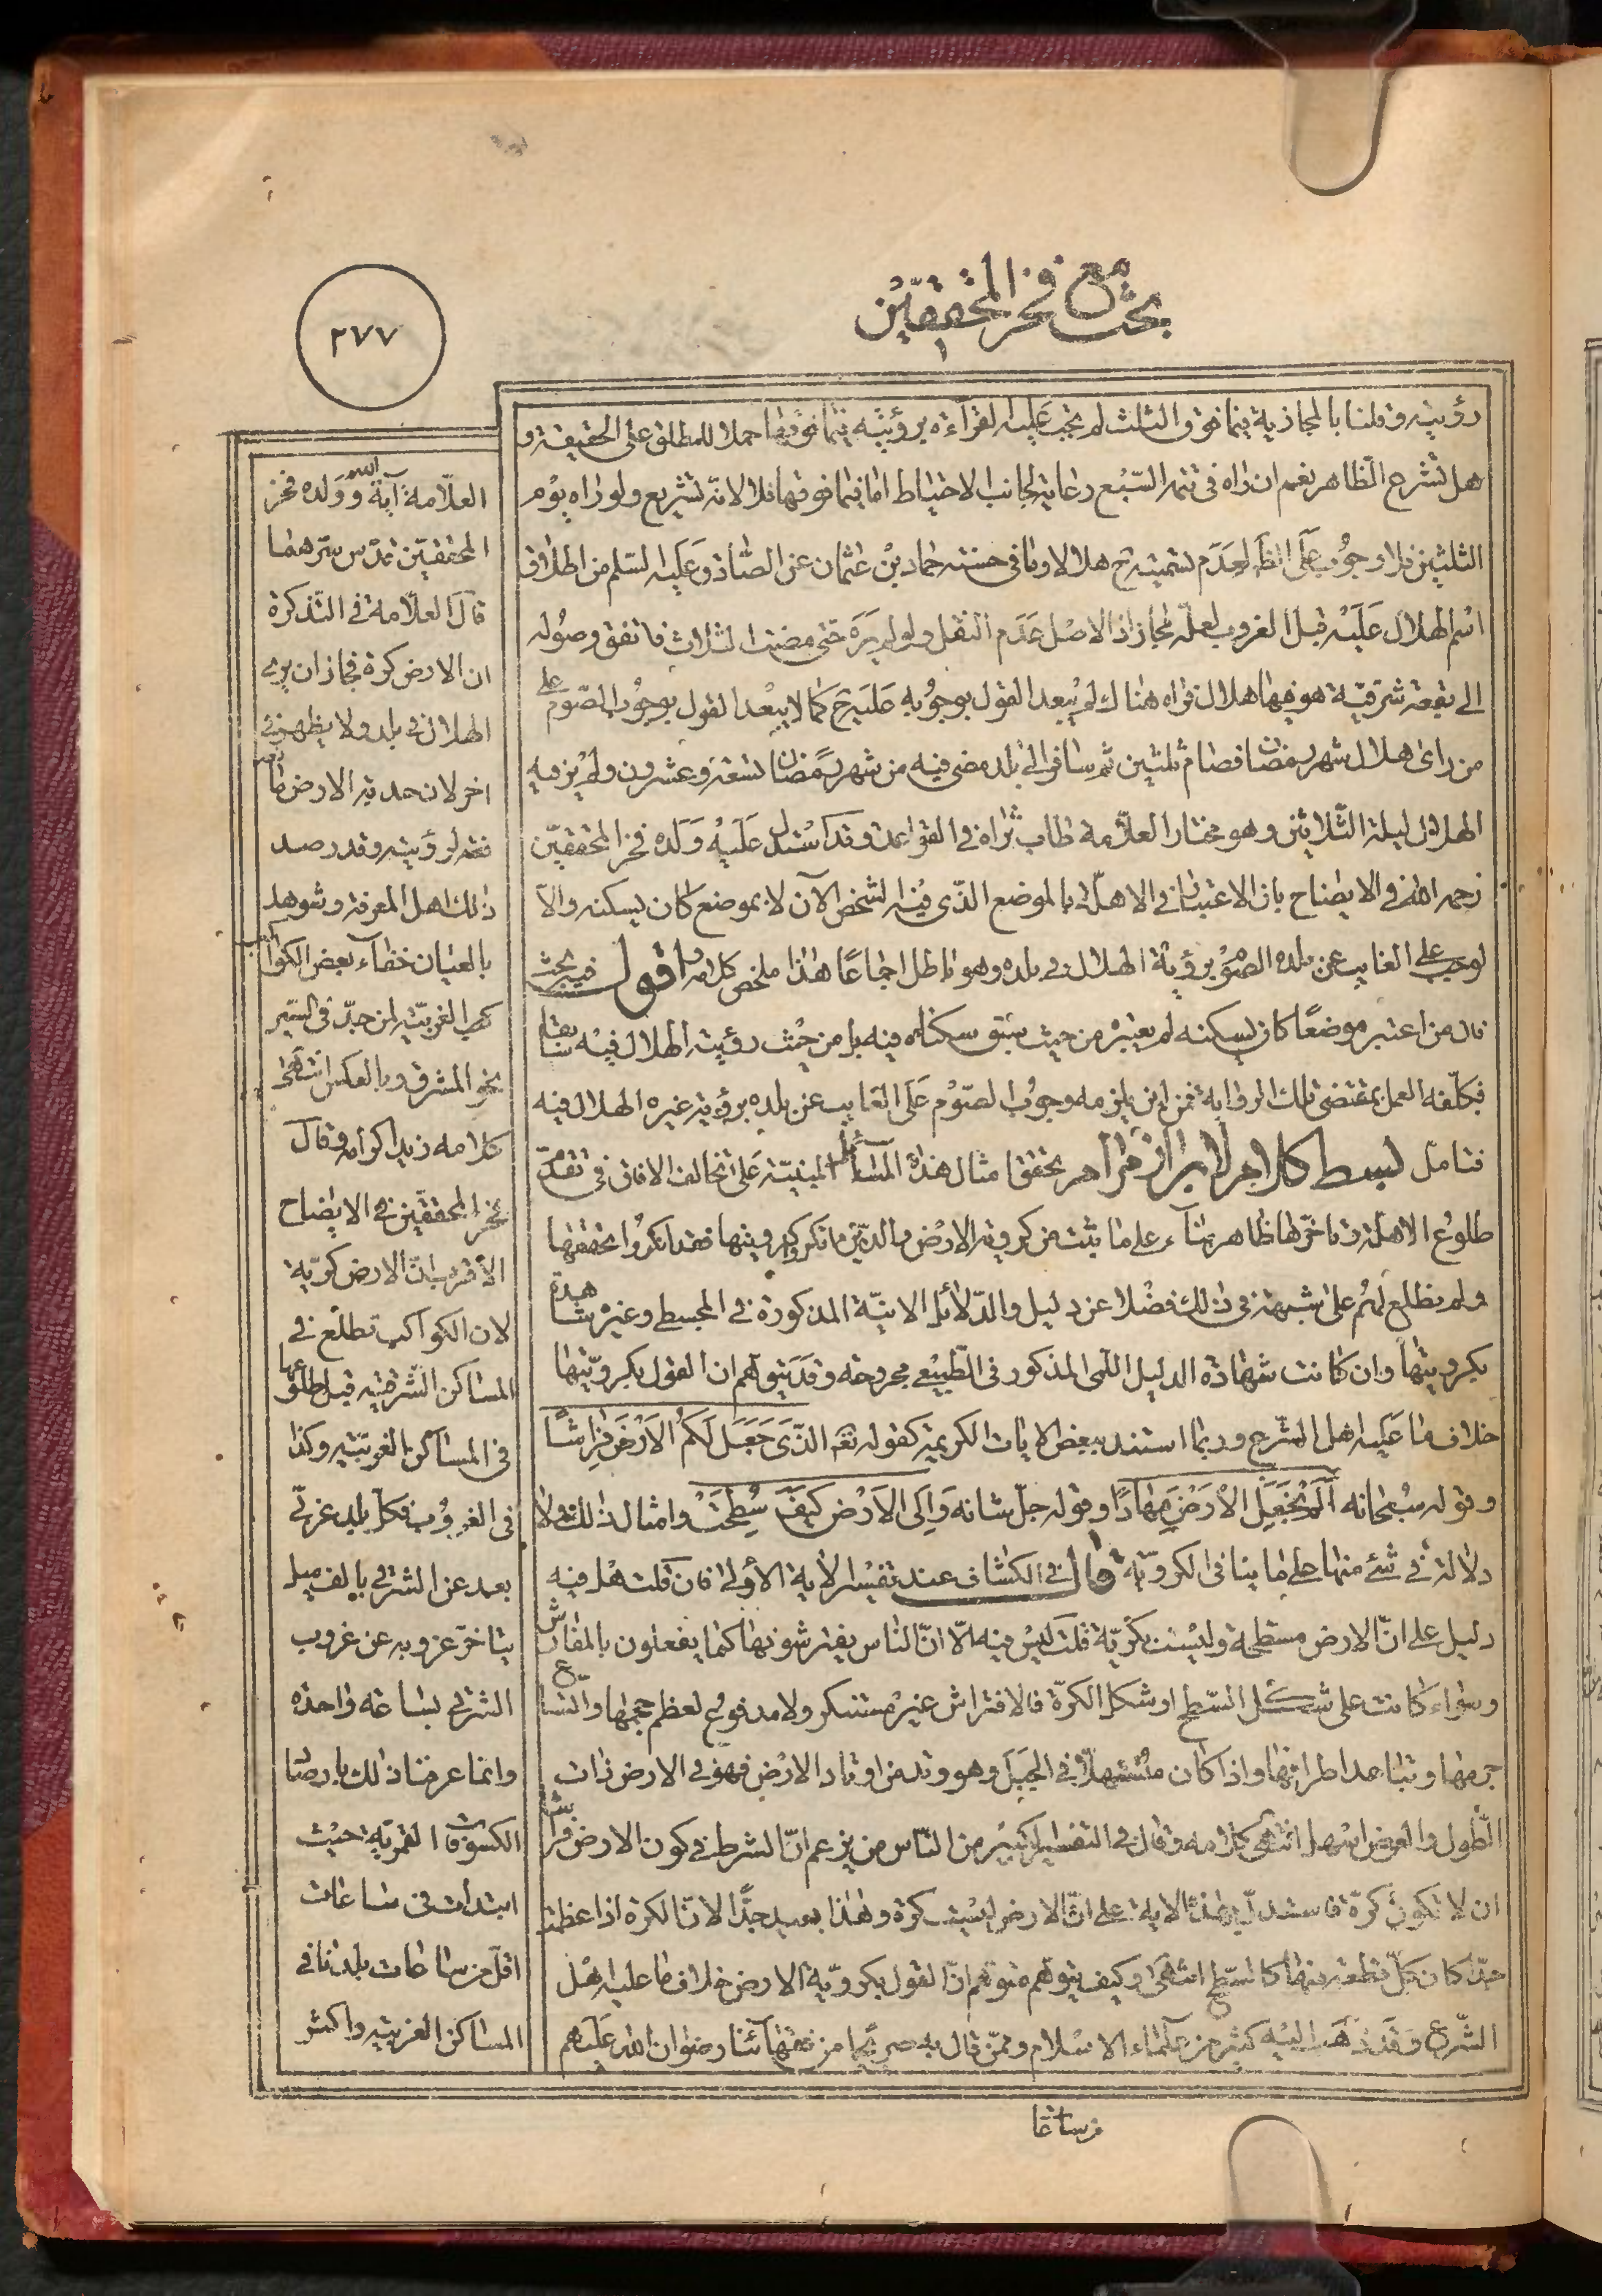 بحث مع فخر المحققين
٢٧٧
رؤيته وقلنا بالمجازية فيما فوق الثلث لم تجب عليه القراءة برؤيته فيما فوقها حملا للمطلق على الحقيقة و
هل تشرح الظاهر نعم ان راه في تتمة السبع رعاية لجانب الاحتياط اما فيما فوقها فلا لانه تشريع ولو راه يوم
الثلثين فلا وجوب على الظ لعدم تسميته ح هلالا وما في حسنة حماد بن عثمان عن الصادق عليه السلم من اطلاق
اسم الهلال عليه قبل الغروب لعله مجاز اذ الاصل عدم النقل ولو لم يره حتى مضت الثلاث فاتفق وصوله
الى بقعة شرقية هو فيها هلال فراه هناك لم يبعد القول بوجوبه عليه ح كما لا يبعد القول بوجوب الصوم على
من رأى هلال شهر رمضان فصام ثلثين ثم سافر الى بلد مضى فيه من شهر رمضان تسعة وعشرون ولم ير فيه
الهلال ليلة الثلاثين وهو مختار العلامة طاب ثراه في القواعد وقد استدل عليه ولده فخر المحققين
رحمه الله في الايضاح بان الاعتبار في الاهلة بالموضع الذي فيه الشخص الآن لا بموضع كان يسكنه والا
لوجب على الغايب عن بلده الصوم برؤية الهلال في بلده وهو باطل اجماعا هذا ملخص كلامه اقول فيه بحث
فان من اعتبر موضعا كان يسكنه لم يعتبره من حيث سبق سكناه فيه بل من حيث رؤية الهلال فيه سابقا
فكلفه العمل بمقتضى تلك الرؤاية فمن اين يلزمه وجوب الصوم على الغايب عن بلده برؤية غيره الهلال فيه
فتامل بسط كلام لابراز مرام تحقق امثال هذه المسائل المبنية على تخالف الافاق في تقدم
طلوع الاهلة وتاخرها ظاهر بناء على ما ثبت من كروية الارض والذين انكروا كرويتها فقد انكروا تحققها
ولم نطلع لهم على شبهة في ذلك فضلا عن دليل والدلائل الانية المذكورة في المجسطي وغيره شاهدة
بكرويتها وان كانت شهادة الدليل اللمى المذكور في الطبيعي مجروحة وقد يتوهم ان القول بكرويتها
خلاف ما عليه اهل الشرع وربما استند ببعض الايات الكريمة كقوله تعه الذي جعل لكم الارض فراشا
وقوله سبحانه الم نجعل الارض مهادا وقوله جل شانه والى الارض كيف سطحت وامثال ذلك ولا
دلالة في شئ منها على ما ينافى الكروية قال في الكشاف عند تفسير الاية الاولى فان قلت هل فيه
دليل على ان الارض مسطحة وليست بكرية قلت ليس فيه الا ان الناس يفترشونها كما يفعلون بالمفارش
وسواء كانت على شكل السطح او شكل الكرة فالافتراش غير مستنكر ولا مدفوع لعظم حجمها واتساع
جرمها وتباعد اطرافها واذا كان متسهلا في الجبل وهو وتد من اوتاد الارض فهو في الارض ذات
الطول والعرض اسهل انتهى كلامه وقال في التفسير الكبير من الناس من يزعم ان الشرط في كون الارض فراشا
ان لا تكون كرة فاستدل بهذه الاية على ان الارض ليست كرة وهذا بعيد جدا لان الكرة اذا عظمت
جدا كان كل قطعة منها كالسطح انتهى وكيف يتوهم متوهم ان القول بكروية الارض خلاف ما عليه اهل
الشرع وقد ذهب اليه كثير من علماء الاسلام وممن قال به صريحا من فقهائنا رضوان الله عليهم
العلامة آية الله وولده فخر
المحققين قدس سرهما
قال العلامة في التذكرة
ان الارض كرة فجاز ان يرى
الهلال في بلد ولا يظهر في
اخر لان حدبة الارض مانعة
لرؤيته وقد رصد
ذلك اهل المعرفة وشوهد
بالعيان خفاء بعض الكواكب
الغربية لمن جد في السير
نحو المشرق وبالعكس انتهى
كلامه زيد اكرامه وقال
فخر المحققين في الايضاح
الاقرب ان الارض كروية
لان الكواكب تطلع في
المساكن الشرقية قبل طلوعها
في المساكن الغربية وكذا
في الغروب فكل بلد غربي
بعد عن الشرقي بالف ميل
يتاخر غروبه عن غروب
الشرقي بساعة واحدة
وانما عرفنا ذلك بارصاد
الكسوفات القمرية حيث
ابتدات في ساعات
اقل من ساعات بلدنا في
المساكن الغربية واكثر
من ساعات